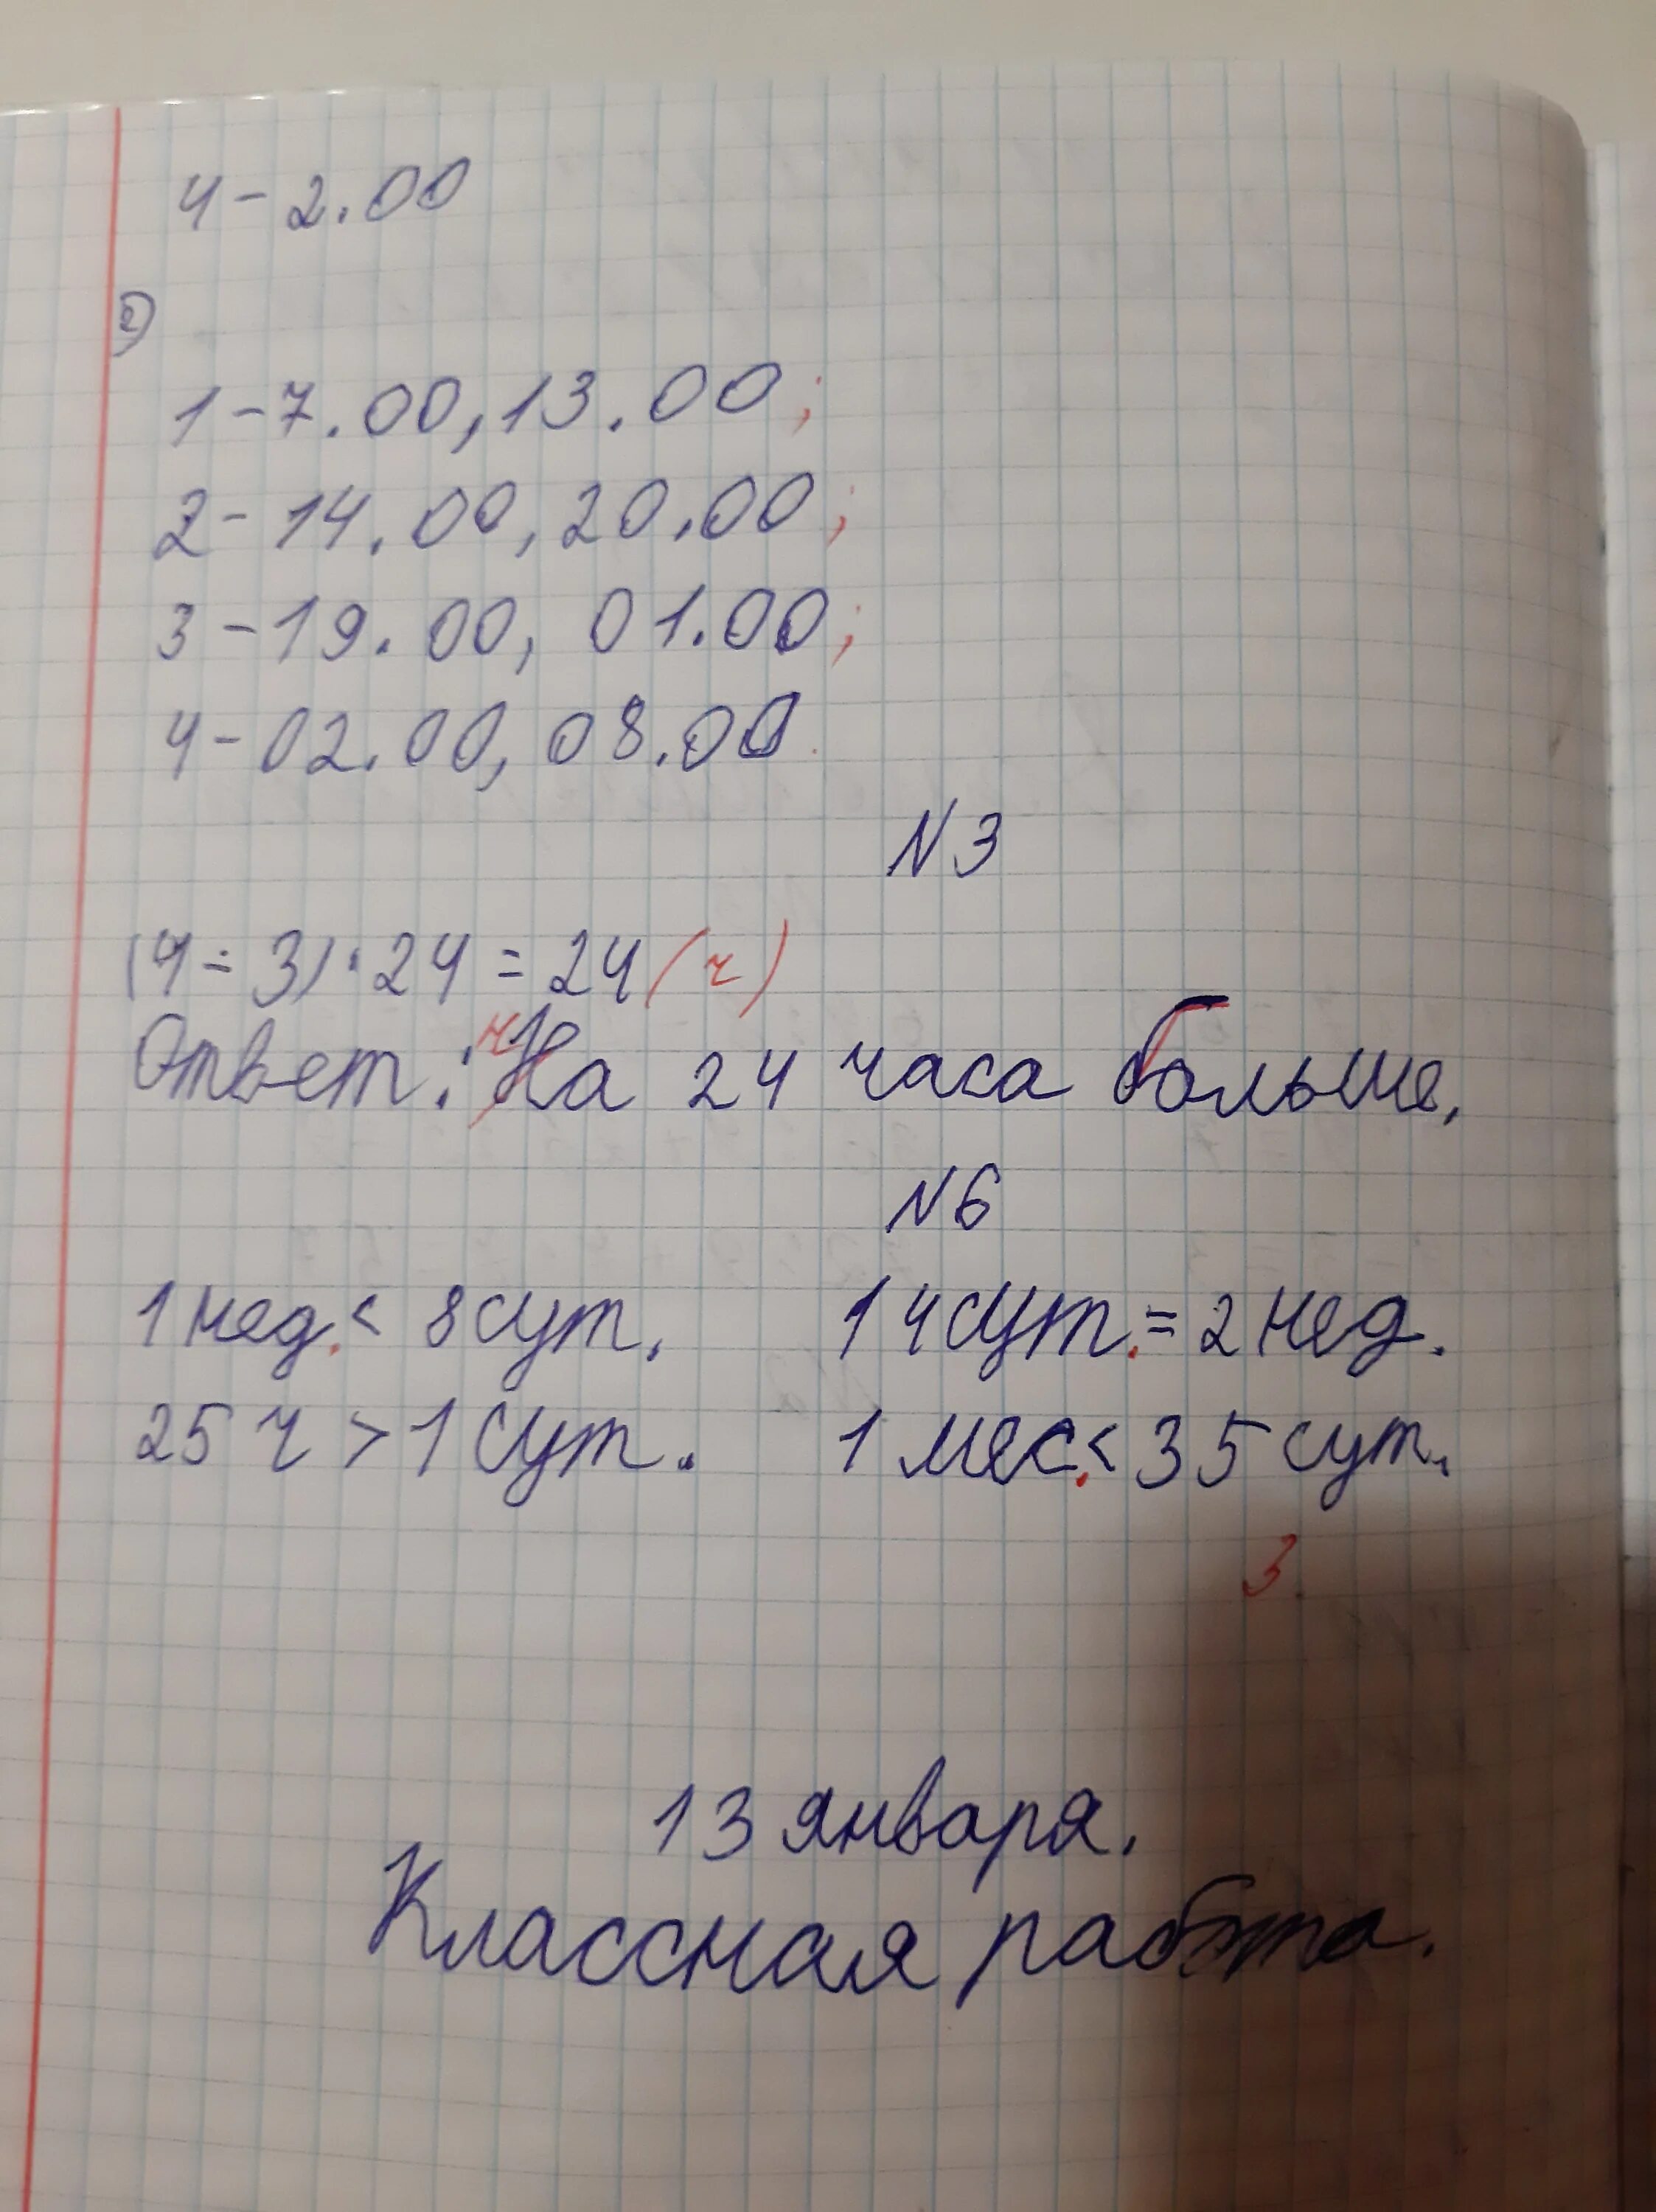 4-2.00
2)
1-7.00, 13.00;
2-14.00, 20.00;
3-19.00, 01.00;
4-02.00, 08.00.
N3
(4-3)·24=24(ч)
Ответ: На н 24 часа больше.
N6
1 нед.< 8 сут. 14 сут.=2 нед.
25 ч > 1 сут. 1 мес.< 35 сут.
3
13 января.
Классная работа.